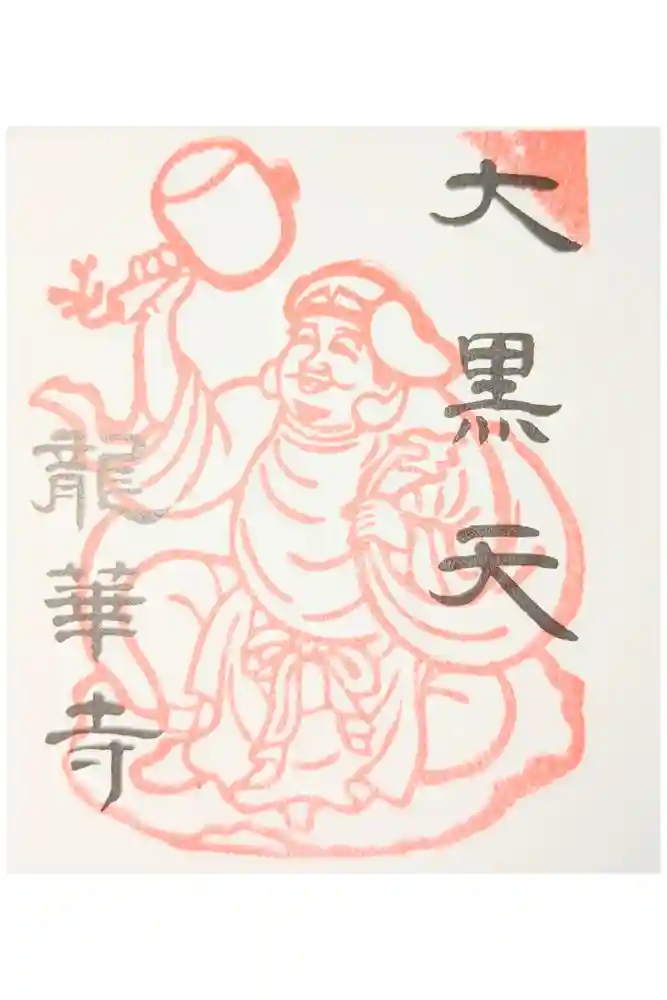 大黒天
龍華寺